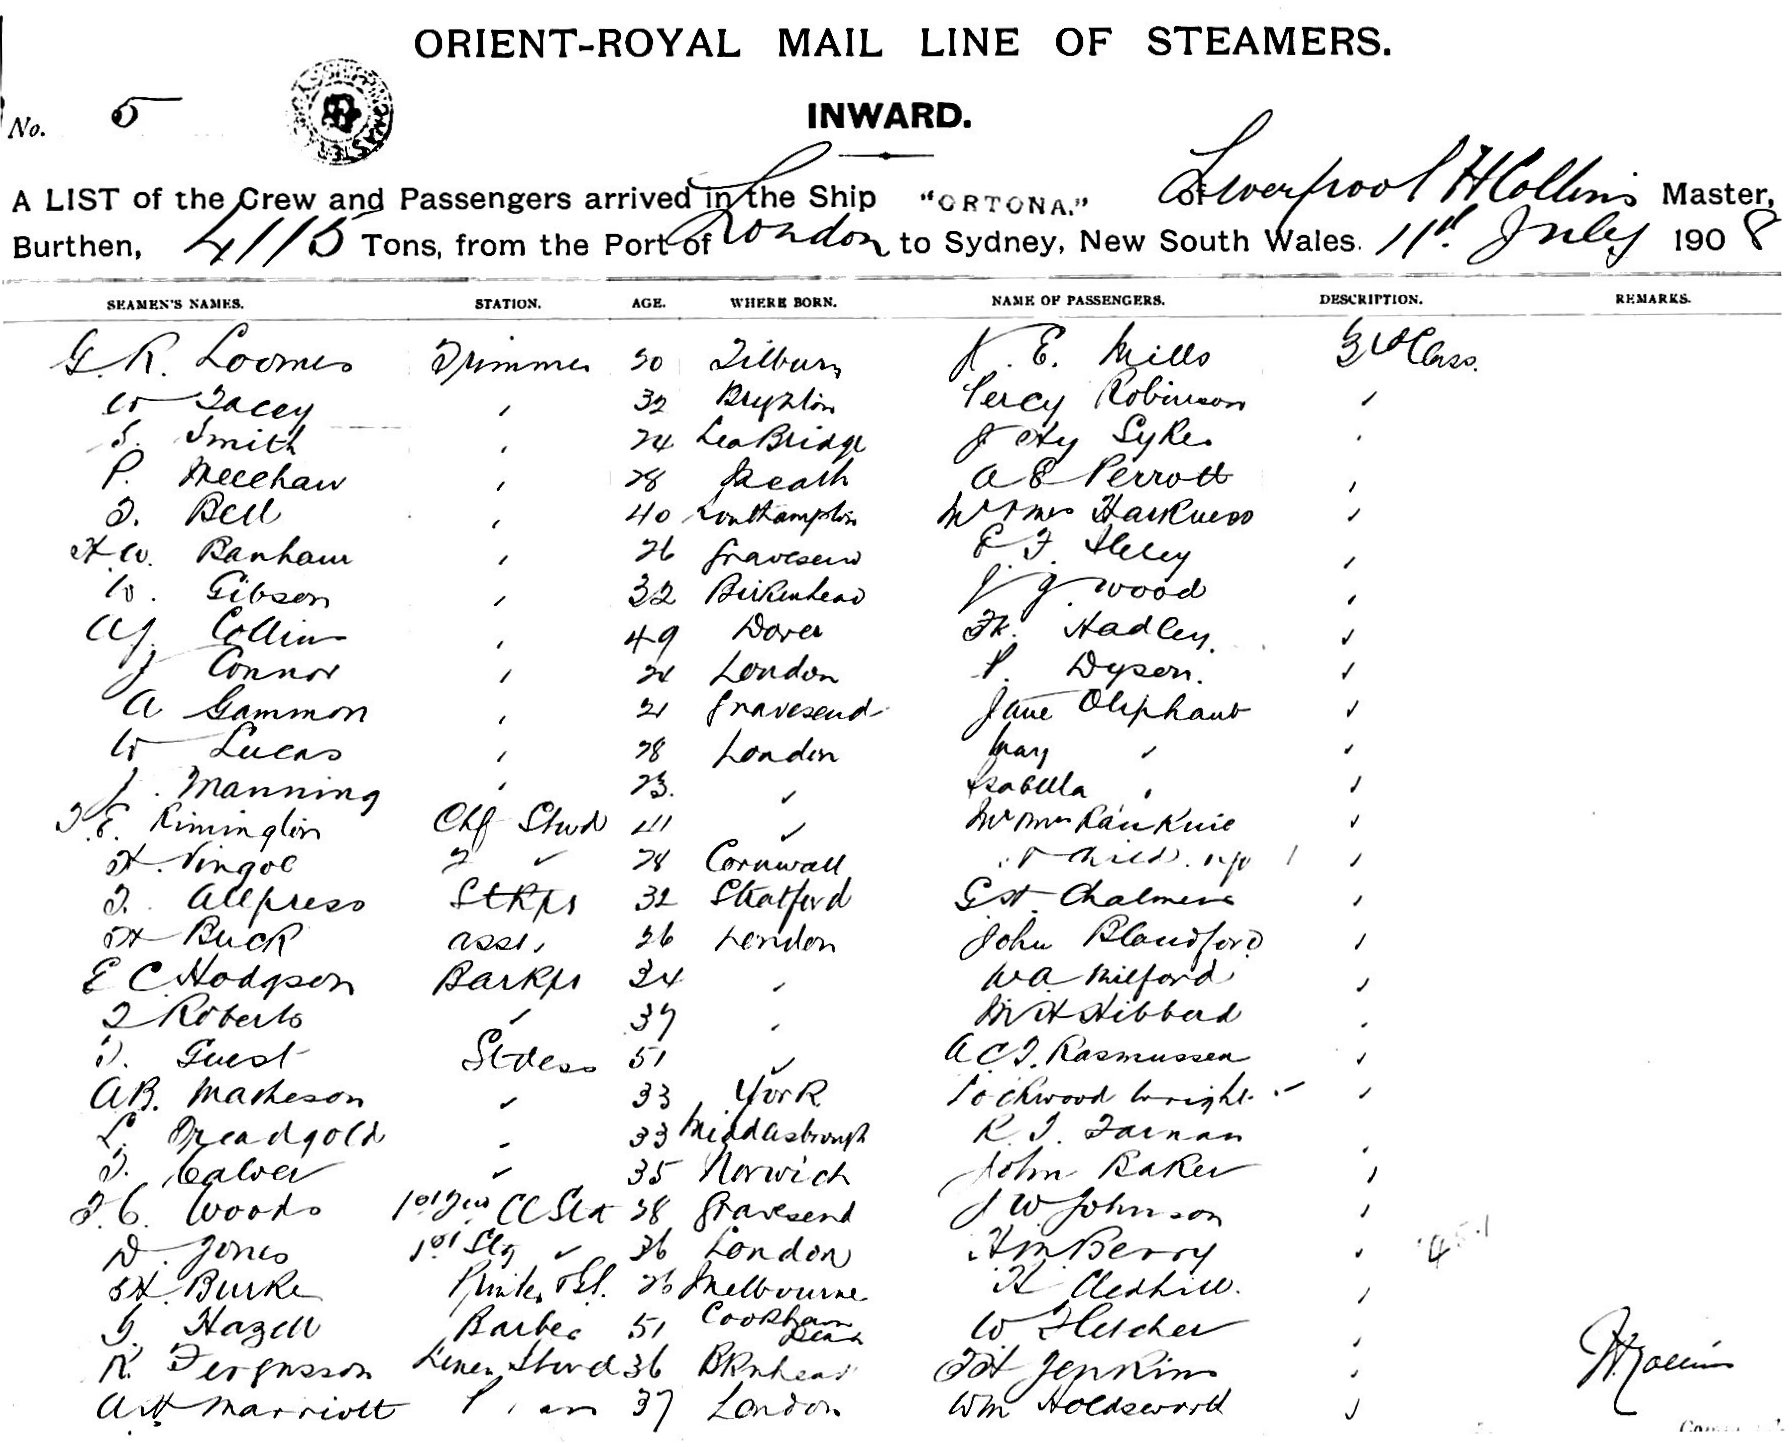 ORIENT-ROYAL MAIL LINE OF STEAMERS.
No. 5
INWARD.
A LIST of the Crew and Passengers arrived in the Ship "ORTONA." of Liverpool H Collins Master,
Burthen, 4115 Tons, from the Port of London to Sydney, New South Wales. 11th July 1908
SEAMEN'S NAMES. STATION. AGE. WHERE BORN. NAME OF PASSENGERS. DESCRIPTION. REMARKS.
G. R. Loomes Trimmer 20 Tilbury E. Mills 3rd Class.
W Tacey " 32 Brighton Percy Robinson "
S. Smith " 24 Lea Bridge J Hy Sykes "
P. Meehan " 28 Meath A E Perrott "
T. Bell " 40 Southampton Mr & Mrs Harkness "
H W. Banham " 26 Gravesend E. F. "
W. Gibson " 32 Birkenhead J. G. Wood "
A J. Collins " 49 Dover Fk. Hadley. "
J Connor " 21 London P. Dyson. "
A Gammon " 21 Gravesend Jane Oliphant "
W Lucas " 28 London Mary " "
J. Manning " 23. " Isabella " "
T. E. Rimington Chf Stwd 41 " Mr & Mrs Rankine "
H. Vingoe 2 " 28 Cornwall & child. 1 "
T. Allpress StKpr 32 Stratford Chalmers "
H Buck asst. 26 London John Blandford "
E C Hodgson Barkpr 34 " W A Milford "
T Roberts " 37 " M H Hibberd "
T. Guest Stdess 51 " A C T. Rasmussen "
A B. Matheson " 33 York Lockwood Wright "
L. Treadgold " 33 Middlesbrough R. T. Farnan "
T. Calver " 35 Norwich John Baker "
T. C. Woods 1st & 2nd Cl Std 28 Gravesend J W Johnson "
D. Jones 1st Stg " 36 London H M Berry "
H. Burke Printer & St. 26 Melbourne H Gledhill. "
G. Hazell Barber 51 Cookham Dean W Fletcher "
R. Fergusson Linen Stwd 36 Bknhead T H Jenkins "
A H Marriott 37 London Wm Holdsworth "
H Collins